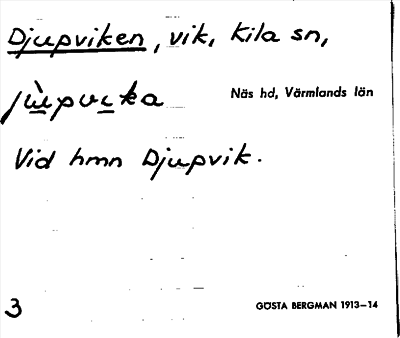 Djupviken, vik, Kila sn,
jùpvika
Näs hd, Värmlands län
Vid hmn Djupvik.
3
GÖSTA BERGMAN 1913–14